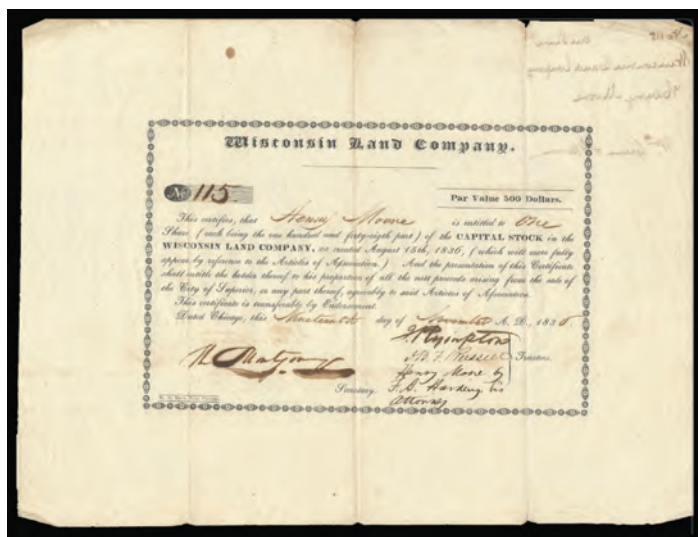 No 115
Wisconsin Land Company
Henry Moore
Wisconsin Land Company.
No 115
Par Value 500 Dollars.
This certifies, that Henry Moore is entitled to One
Share, (each being the one hundred and forty-sixth part) of the CAPITAL STOCK in the
WISCONSIN LAND COMPANY, as created August 15th, 1836, (which will more fully
appear by reference to the Articles of Association.) And the presentation of this Certificate
shall entitle the holder thereof to his proportion of all the nett proceeds arising from the sale of
the City of Superior, or any part thereof, agreeably to said Articles of Association.
This certificate is transferable by Endorsement.
Dated Chicago, this Nineteenth day of November A. D., 1836.
B. F. Russell
Trustees.
Henry Moore by
F. A. Harding his
Attorney
Secretary.